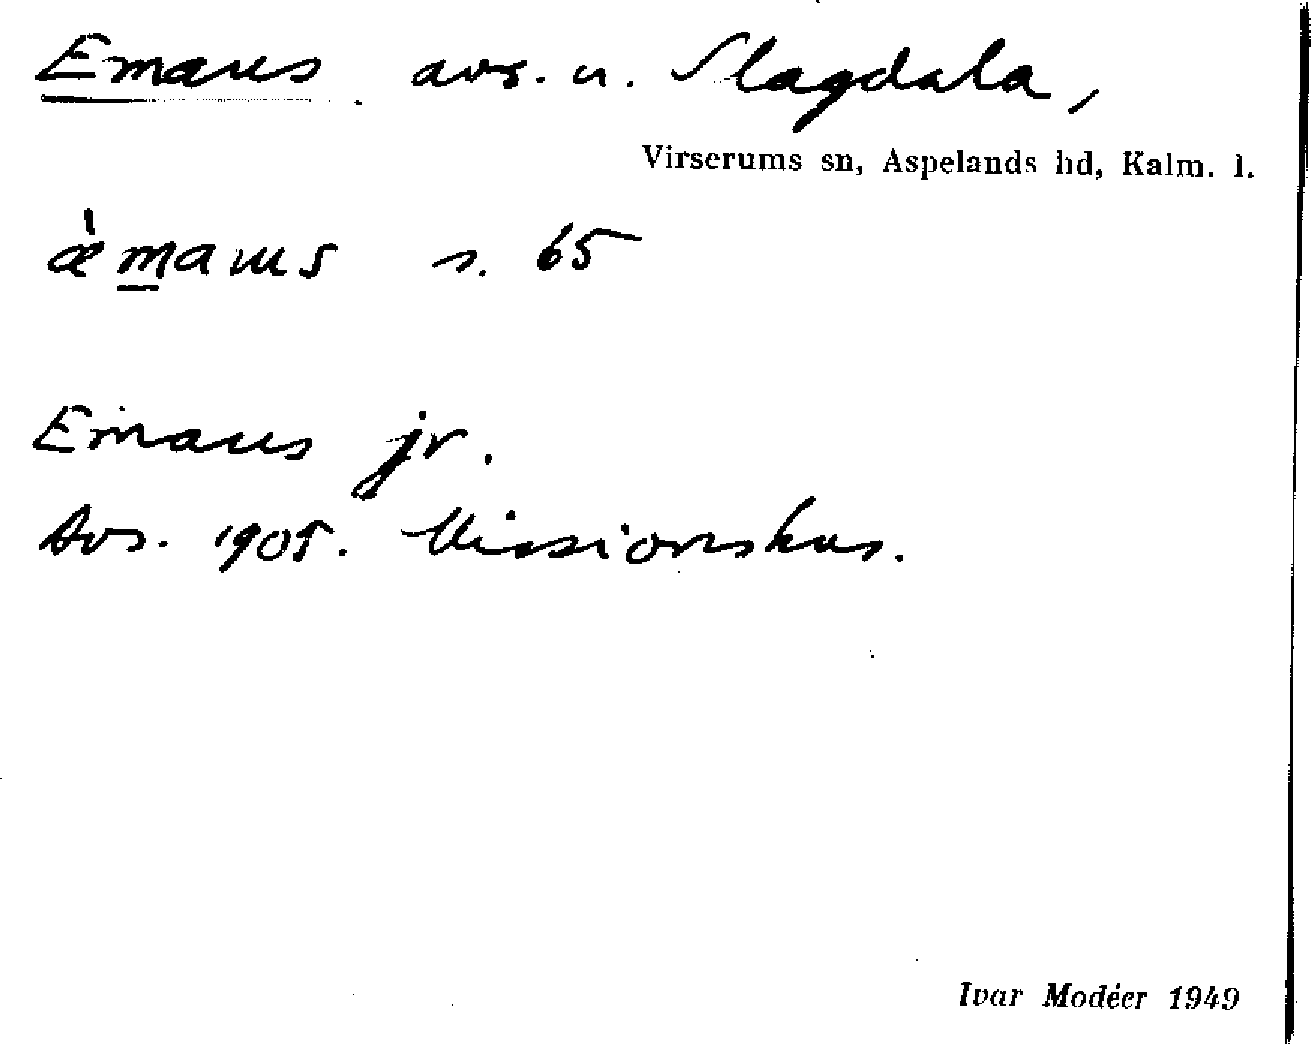 Emaus avs. u. Slagdala,
Virserums sn, Aspelands hd, Kalm. l.
æ̀maus s. 65
Emaus jr.
Avs. 1905. Missionshus.
Ivar Modéer 1949